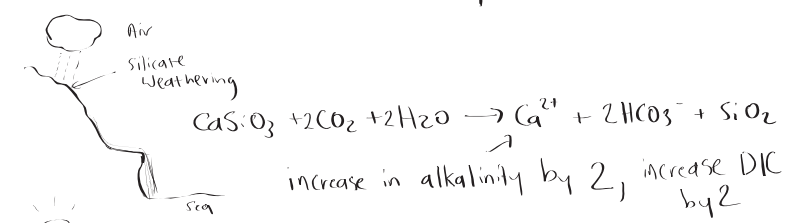 Air
Silicate
Weathering
CaSiO₃ +2CO₂ +2H2O → Ca²⁺ + 2HCO₃⁻ + SiO₂
increase in alkalinity by 2, increase DIC
by 2
Sea